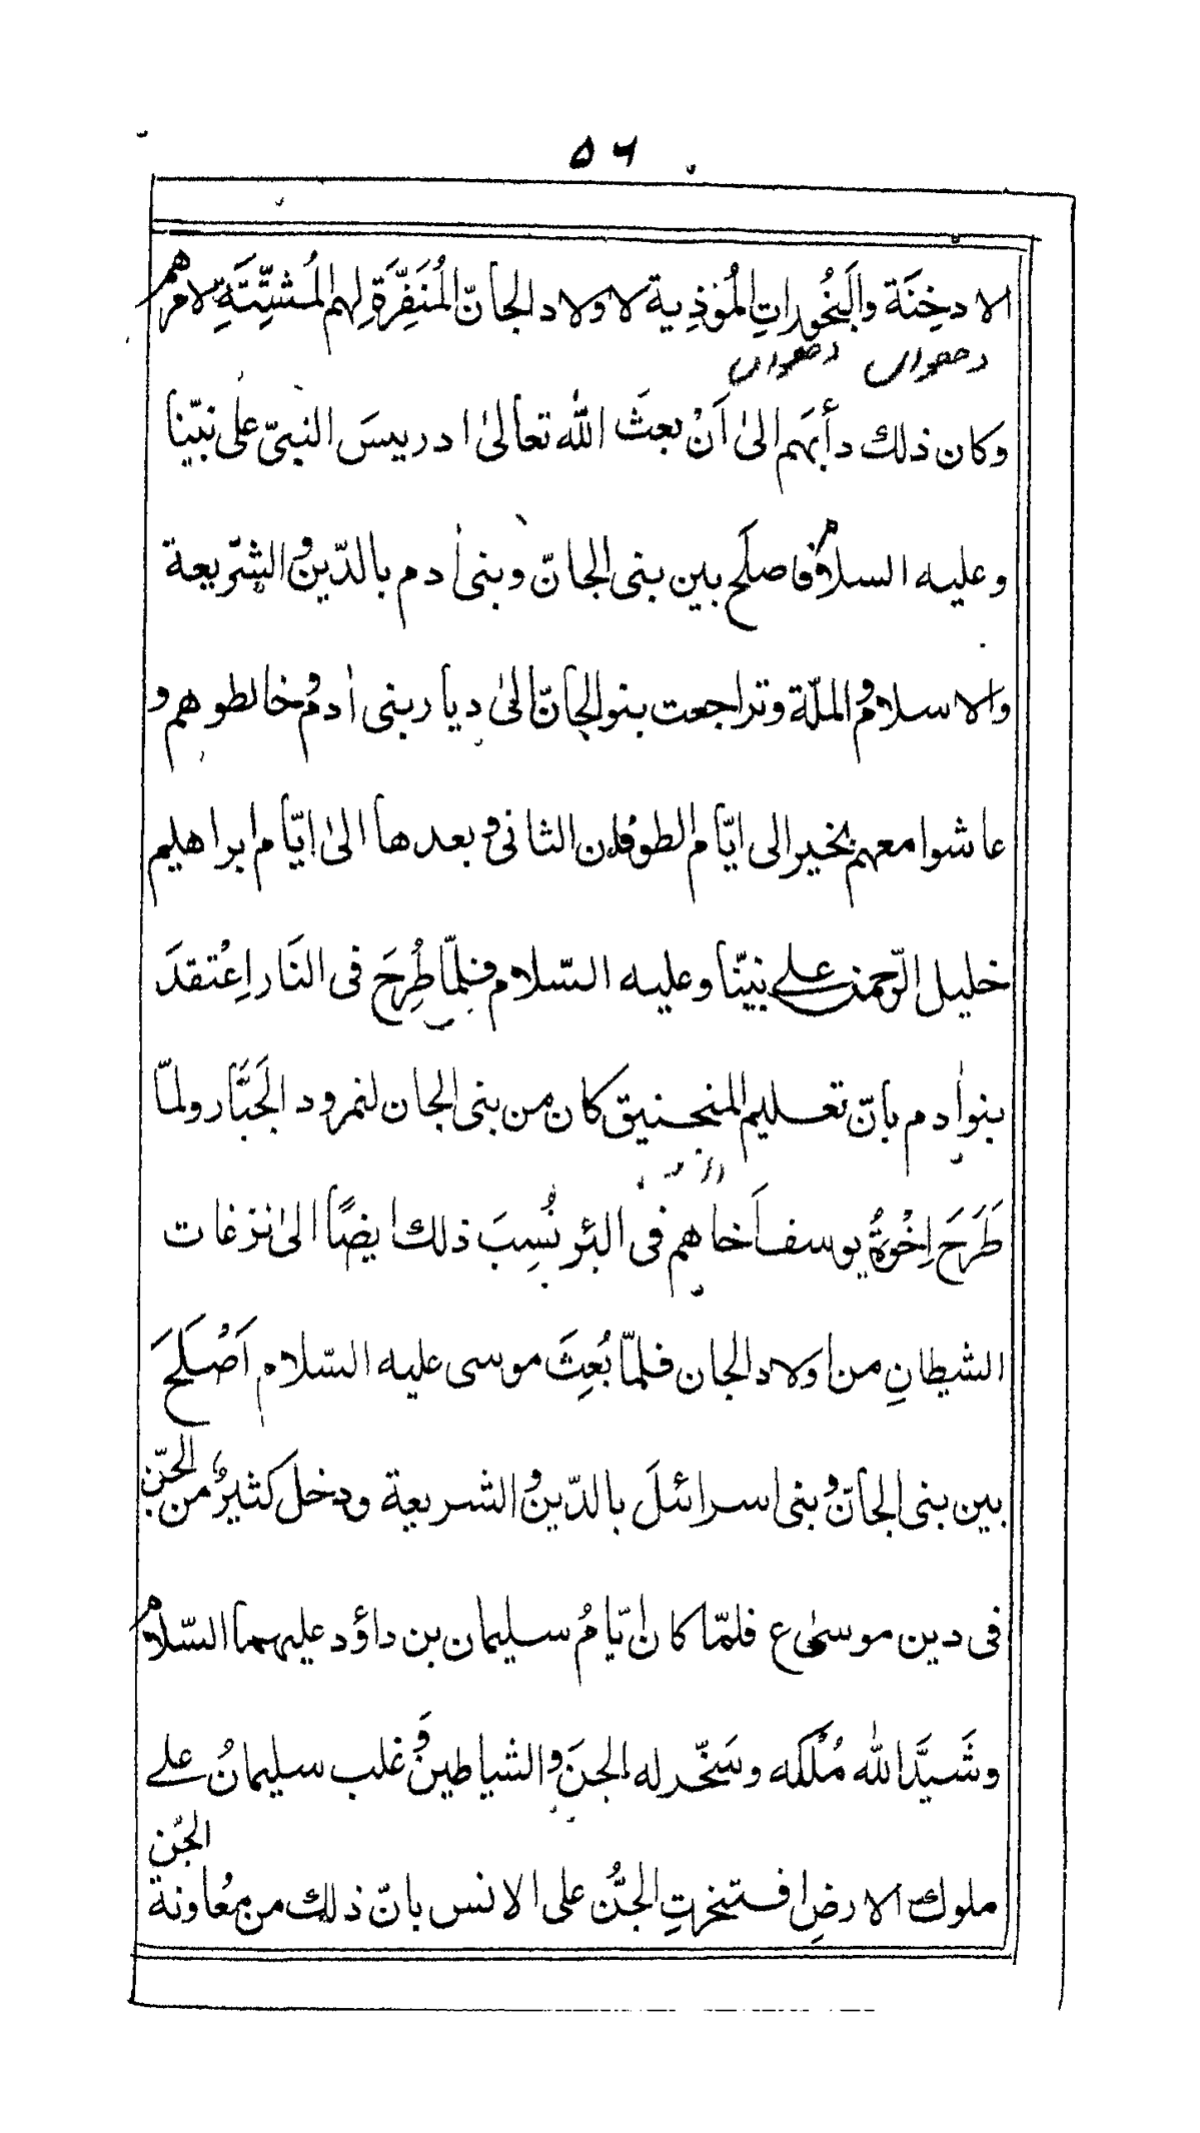 ۵۶
الادخِنَة والبَخُوراتِ المُؤذِية لاولاد الجانّ المُنَفِّرَةِ لهم المُشتِّتَةِ لامرهم
دھواں دھواں
وكان ذلك دأبَهم الىٰ اَنْ بعثَ اللّٰه تعالىٰ ادريسَ النبىّ على نبيّنا
وعليه السلام فاصلَح بين بنى الجانّ وبنى اٰدم بالدّين والشّريعة
والاسلام والملّة وتراجعت بنو الجانّ الىٰ ديار بنى اٰدم وخالطوهم و
عاشوا معهم بخير الى ايّام الطوفان الثانى وبعدها الىٰ ايّام ابراهيم
خليل الرّحمٰن علے نبيّنا وعليه السّلام فلمّا طُرِحَ فى النَار اِعْتقدَ
بنو اٰدم بانّ تعليم المنجنيق كان من بنى الجان لنمرود الجَبَّار ولمّا
طَرَحَ اِخْوةُ يوسف اَخاهم فى البئر نُسِبَ ذلك ايضًا الىٰ نزغات
الشيطانِ من اولاد الجان فلمّا بُعِثَ موسى عليه السّلام اَصْلَحَ
بين بنى الجانّ وبنى اسرائلَ بالدّين والشريعة ودخل كثيرٌ من الجنّ
فى دين موسىٰ ع فلمّا كان ايّامُ سليمان بن داؤد عليهما السّلام
وشَيَّدَ اللّٰه مُلْكَه وسَخّر له الجنَ والشياطينَ وغلب سليمانُ علے
ملوك الارضِ افتخرتِ الجنُّ على الانس بانّ ذلك من مُعاونة
الجنّ